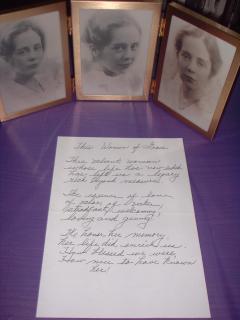 This Woman of Grace
This valiant woman
whose life has now ended
has left us a legacy
rich beyond measure.
The essence of love
of valor, of
steadfast, welcoming,
loving and giving!
To honor her memory
her life did enrich us.
How blessed we were
to have known
her!